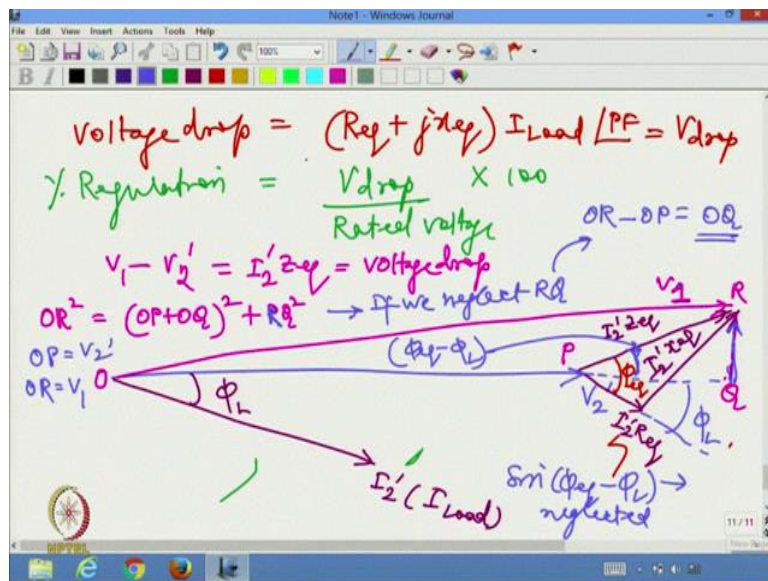 Note1 - Windows Journal
File Edit View Insert Actions Tools Help
100%
B I
Voltage drop = (Req + jxeq) ILoad ∠PF = Vdrop
% Regulation = Vdrop / Rated voltage × 100
OR – OP = OQ
V1 – V2' = I2' Zeq = voltage drop
OR² = (OP+OQ)² + RQ² → If we neglect RQ
V1 R
OP = V2'
OR = V1
O
(φeq – φL)
P
I2' Zeq
I2' xeq
φeq
Q
φL
V2'
I2' Req
φL
I2' (ILoad)
Sin (φeq – φL) →
neglected
NPTEL
11 / 11